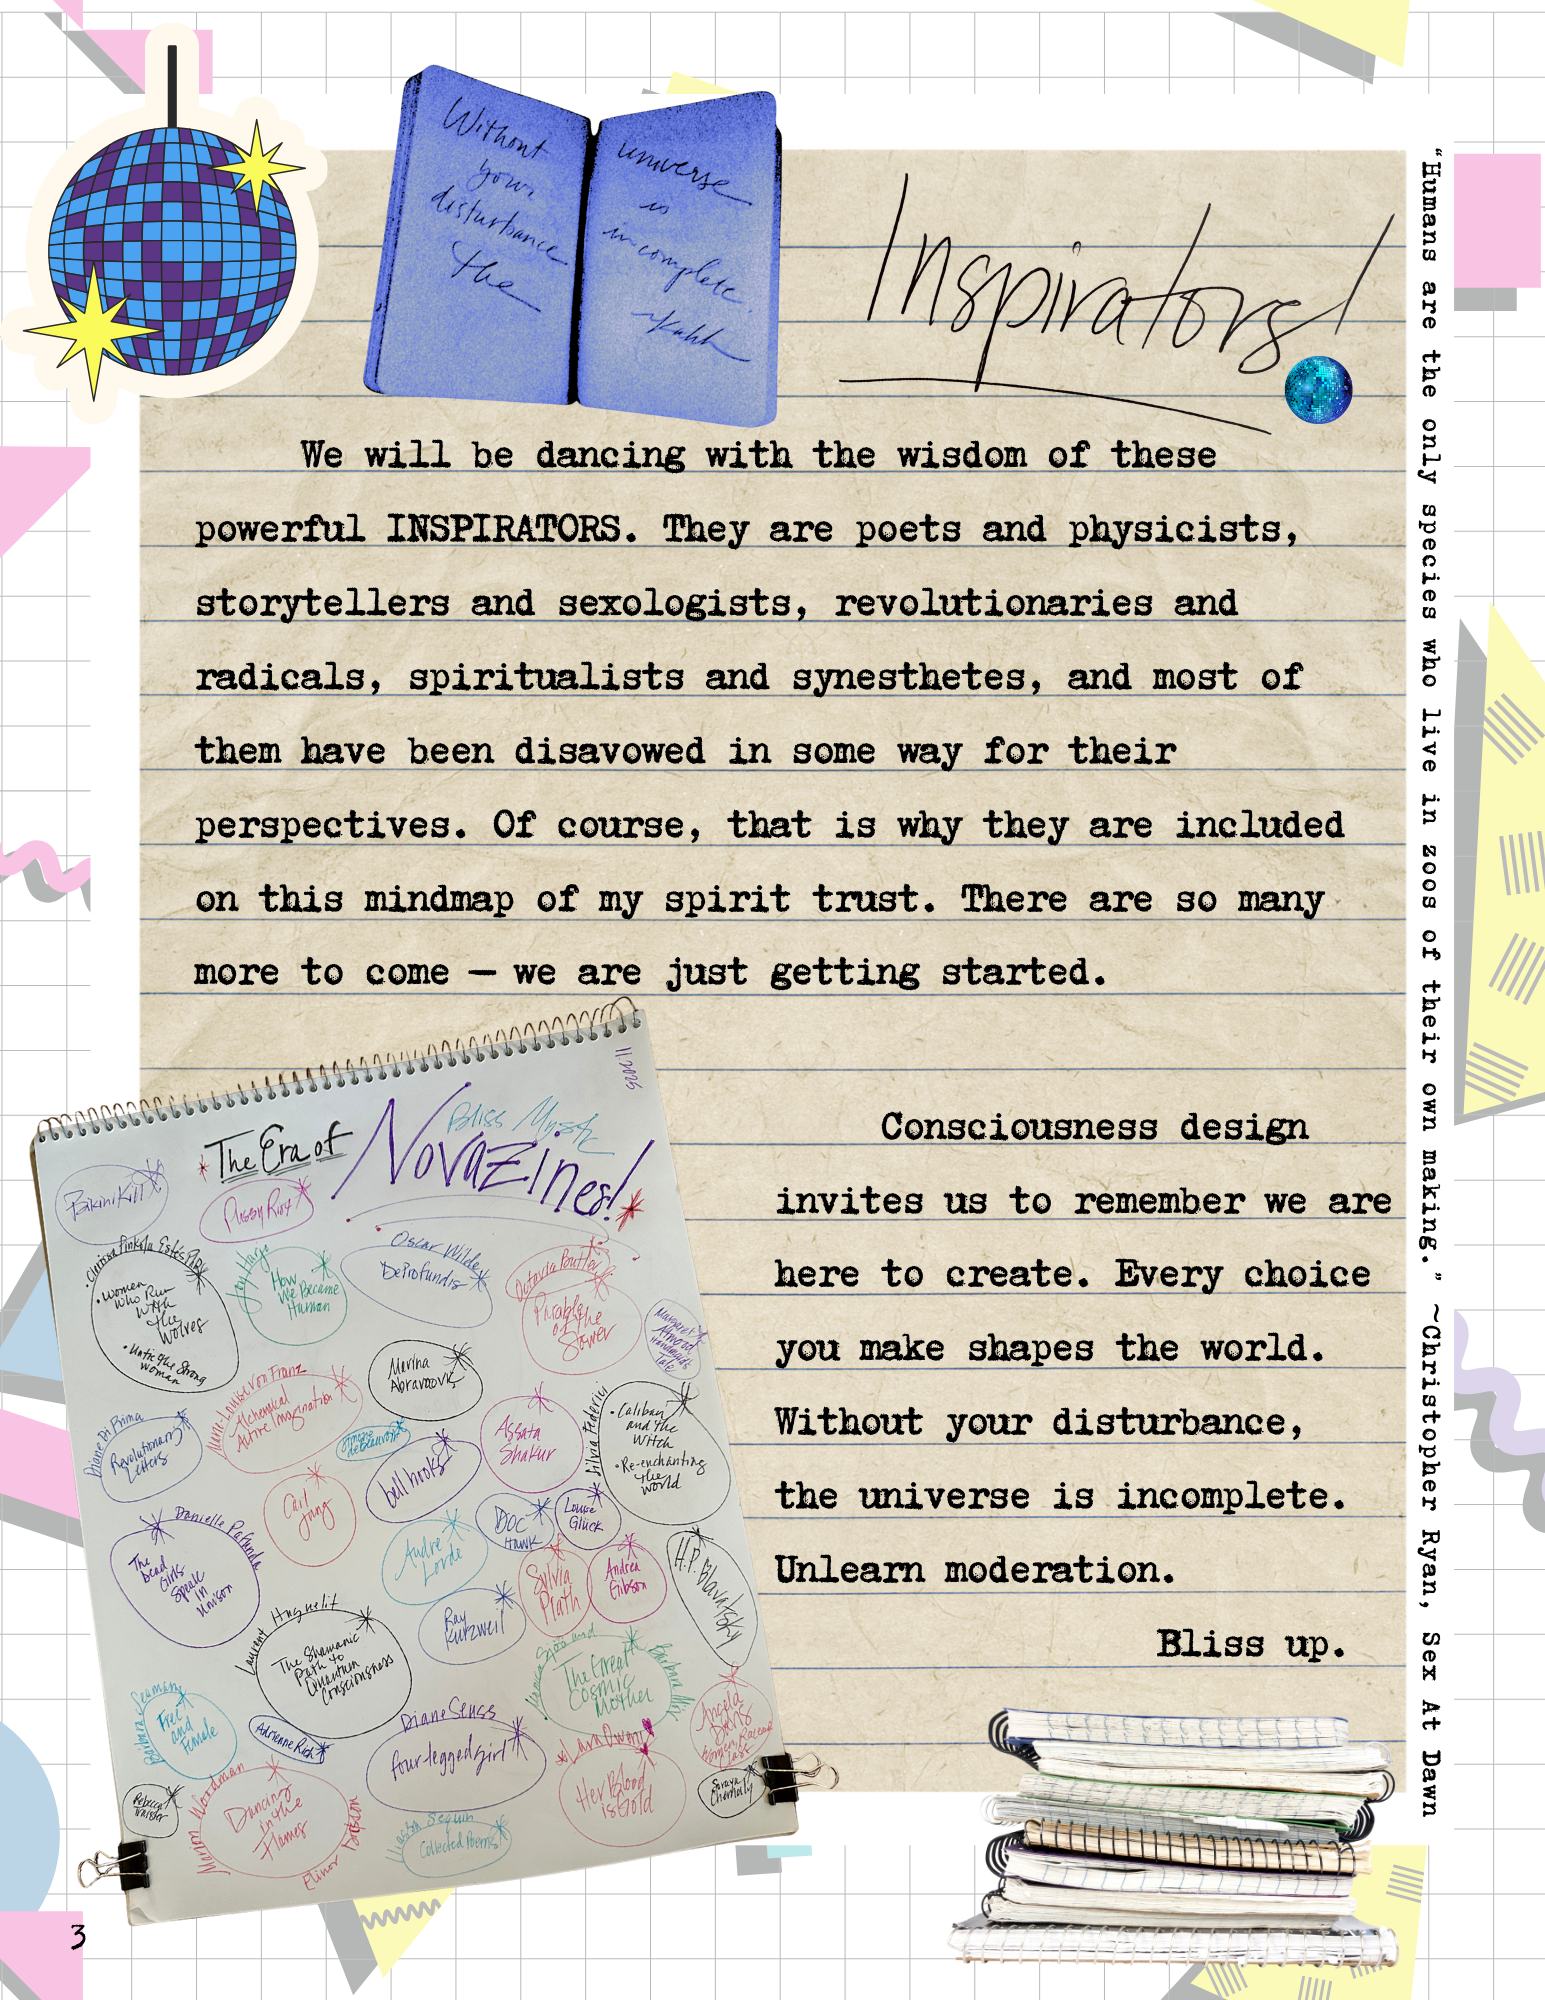 Without
your
disturbance
the
universe
is
incomplete.
Inspirators!
We will be dancing with the wisdom of these
powerful INSPIRATORS. They are poets and physicists,
storytellers and sexologists, revolutionaries and
radicals, spiritualists and synesthetes, and most of
them have been disavowed in some way for their
perspectives. Of course, that is why they are included
on this mindmap of my spirit trust. There are so many
more to come — we are just getting started.
Consciousness design
invites us to remember we are
here to create. Every choice
you make shapes the world.
Without your disturbance,
the universe is incomplete.
Unlearn moderation.
Bliss up.
"Humans are the only species who live in zoos of their own making." ~Christopher Ryan, Sex At Dawn
11.2025
Bliss
The Era of
Novazines!
Bikini Kill
Pussy Riot
Clarissa Pinkola Estés
• Women
Who Run
With
the
Wolves
• Untie the Strong
woman
Joy Harjo
How
We Became
Human
Oscar Wilde
De Profundis
Octavia Butler
Parable
of the
Sower
Margaret
Atwood
Handmaid's
Tale
Marie-Louise Von Franz
Alchemical
Active Imagination
Marina
Abramovic
Diane Di Prima
Revolutionary
Letters
Simone
de Beauvoir
bell hooks
Assata
Shakur
Silvia Federici
• Caliban
and the
Witch
• Re-enchanting
the
world
Carl
Jung
Doc
Hawk
Louise
Glück
Danielle Pafunda
The
Dead
Girls
Speak
in
Unison
Audre
Lorde
Sylvia
Plath
Andrea
Gibson
H.P. Blavatsky
Ray
Kurzweil
Laurent Huguelit
The Shamanic
Path to
Quantum
Consciousness
Monica Sjöö and
Barbara Mor
The Great
Cosmic
Mother
Barbara Seaman
Free
and
Female
Adrienne Rich
Diane Seuss
four-legged girl
Lara Owen
Her Blood
is Gold
Angela
Davis
Women, Race and
Class
Soraya
Chemaly
Rebecca
Traister
Marion Woodman
Dancing
in the
Flames
Elinor Dickson
Seguin
Collected Poems
3